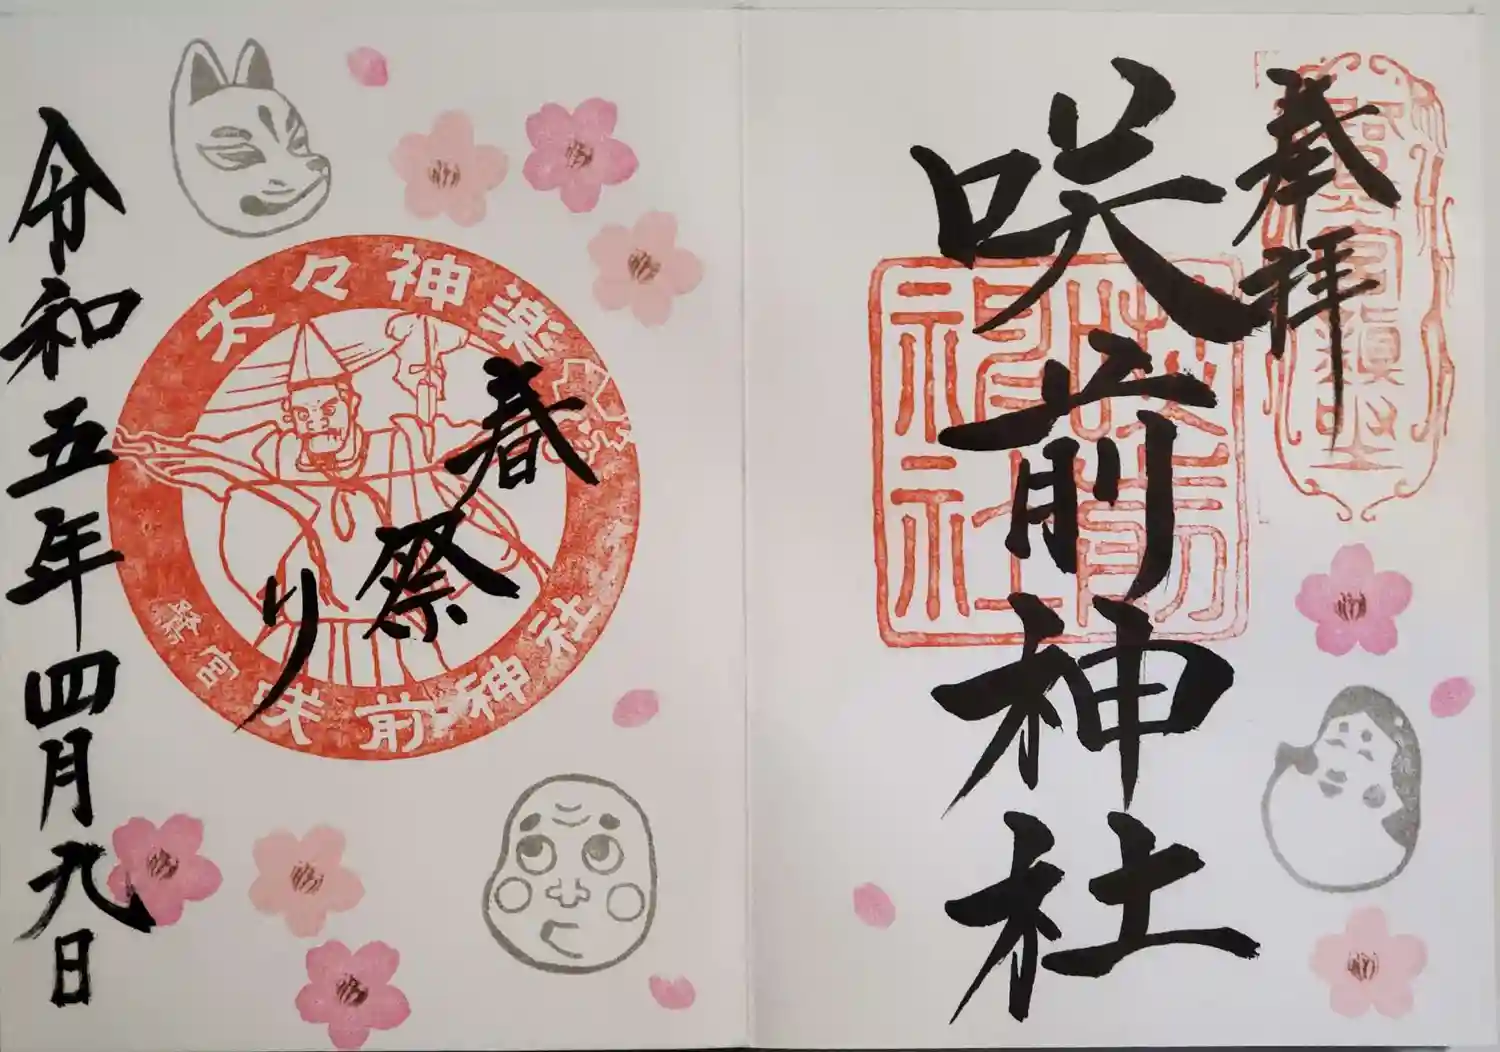 奉拝
咲前神社
咲前神社
太々神楽
鷺宮 咲前神社
春祭り
令和五年四月九日